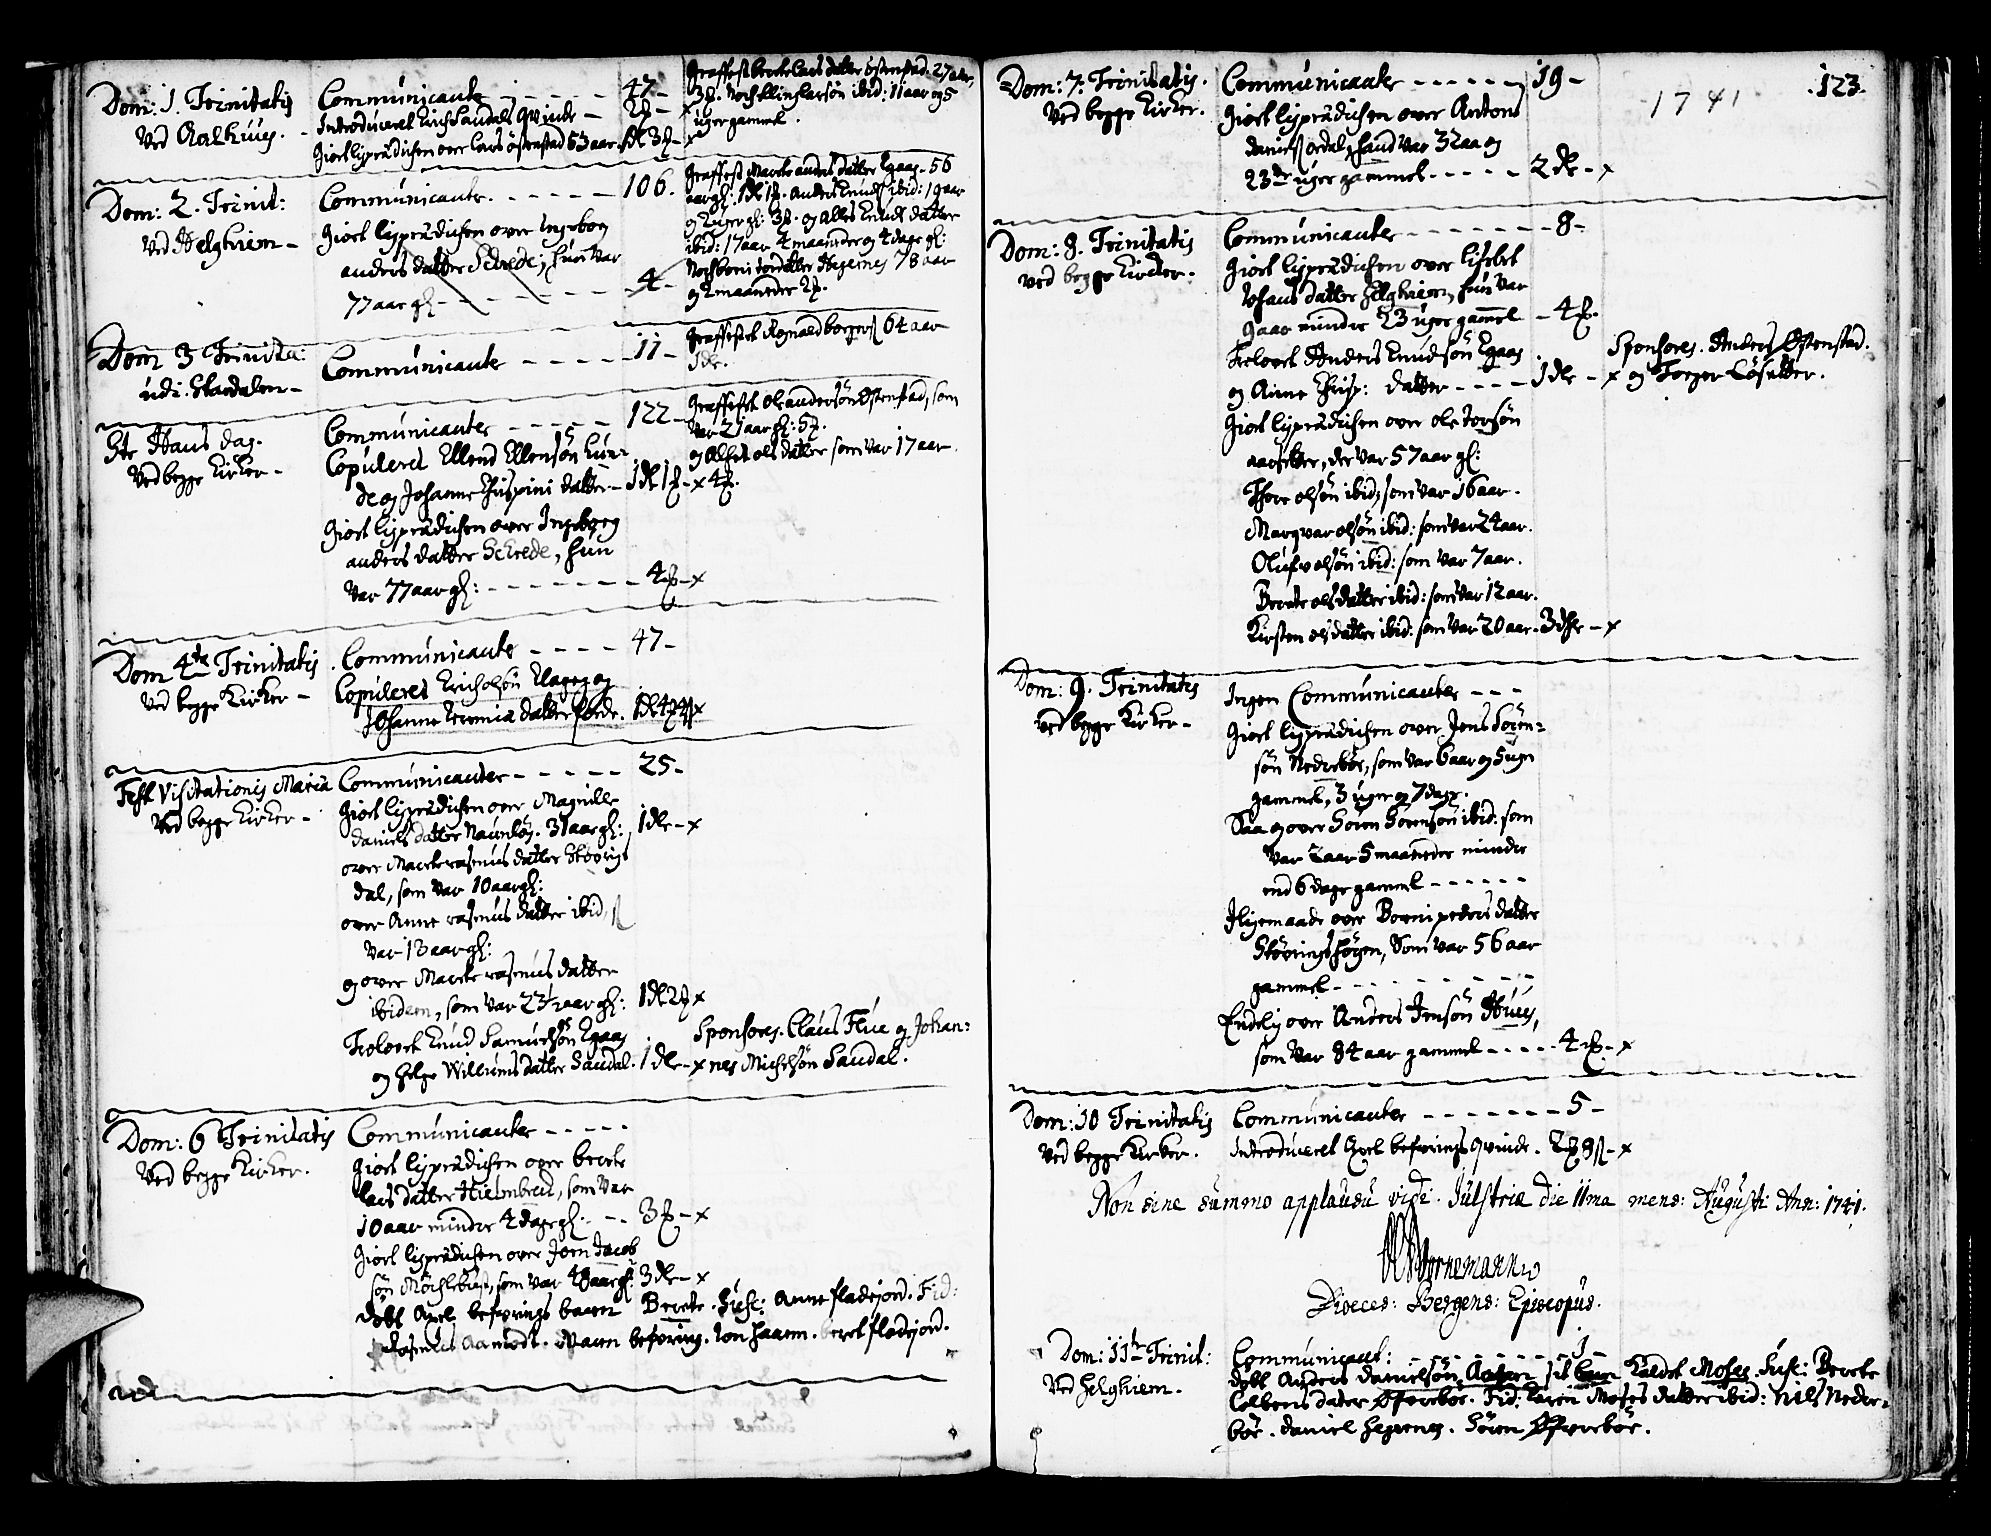 Dom: 1. Trinitatis
Ved Aalhuus.
Communicanter - - - - 47 -
Introduceret Erich Sandals Qvinde - 2
Giort ligprædichen over Lars Østenstad 53 aar. 1dl 3
Graffest berete Lars datter Østenstad. 27 aar.
Noch Elling Larsøn ibid: 11 aar og 5
uger gammel.
Dom: 2. Trinit:
Ved Helghiem -
Communicanter. - - - - 106.
Giort ligprædichen over Ingebog
anders datter Schrede; hun var
77 aar gl: - - - - 4
Graffest Marete anders datter Egaas. 56
aar gl: 1dl 1. Anders Knudsøn ibid: 19 aar
og 2 uger gl: 3. og Alles Knuds datter
ibid: 17 aar 4 maaneder og 4 dage gl:
datter Hegernes 78 aar
og 2 maaneder 2.
Dom 3 Trinita:
udi Stardalen -
Communicanter - - - - 11 -
Graffestet 64 aar
1dr.
Ste Hans dag.
Ved begge Kirker -
Communicanter - - - - 122 -
Copuleret Ellend Ellensøn
de og Johanne Chrispini datter - 1dl 1 - x 4.
Giort ligprædichen over Ingeborg
anders datter Schrede, hun
var 77 aar gl: - - - - 4 - x
Graffestet Ole andersøn Østenstad, som
var 21 aar gl: 5.
og ols datter som var 17 aar.
Dom 4de Trinitatis.
Ved begge Kirker -
Communicanter - - - - 47 -
Copuleret Erich olsøn Klageg og
Johanne datter
Fest Visitationis Mariæ
Ved begge Kirker -
Communicanter - - - - 25 -
Giort ligprædichen over Magnille
daniels datter 31 aar gl: 1dr - x
over Marete rasmus datter Støvrings
dal, som var 10 aar gl:
over Anne rasmus datter ibid,
var 13 aar gl:
og over Marete rasmus datter
ibidem, som var 23 1/2 aar gl: 1dl 2 x
Trolovet Knud Samuelsøn Egaas
og Helge Willums datter Sandal. 1dr - x
Sponsores. Claus Flue og Johan:
nes Michelsøn Sandal.
Dom: 6 Trinitatis
Ved begge Kirker.
Communicanter - - - -
Giort ligprædichen over berete
Lars datter Hielmbred, som var
10 aar mindre 4 dage gl: - - 3 - x
Giort ligprædichen over Joen Jacob
søn som var 48 aar gl: 3dr - x
døbt Axel befrings baaren Berete. Susc: Anne fladejord. Fid:
Rasmus Aamodt. befring. beret fladejord.
Dom: 7: Trinitatis.
Ved begge Kirker.
Communicanter - - - - 19 -
Giort ligprædichen over Antoni
daniels ordal, hand var 32 aar og
23de uger gammel - - - - 2dr - x
1741
123
Dom: 8. Trinitatis
Ved begge Kircker.
Communicanter - - - - 8 -
Giort ligprædichen over Lisbet
Johans datter Helghiem, hun var
9 aar mindre 23 uger gammel - 4.
Trolovet Anders Knudsøn Egaas
og Anne Chrisp: datter - - - - 1dr - x
Sponsores. Anders Østenstad.
og Torger Løsetter.
Giort ligprædichen over ole torsøn
aarsetter, der var 57 aar gl:
Thore olsøn ibid; som var 16 aar.
Marqvar olsøn ibid: som var 24 aar.
Oluf olsøn ibid: som var 7 aar.
Berete ols datter ibid: som var 12 aar.
Kirsten ols datter ibid: som var 20 aar. 3dr - x
Dom: 9. Trinitatis
Ved begge Kirker -
Ingen Communicanter - - -
Giort ligprædichen over Jens Soren=
søn Nederbøe, som var 6 aar og 5 ugr
gammel, 3 uger og 7 dage.
Saa og over Søren Sørensøn ibid: som
var 2 aar 5 maaneder mindre
end 6 dage gammel - - - - -
Iligemaade over Borni peders datter
Støvringshøgen, som var 56 aar
gammel - - - - - - -
Endelig over Anders Jensøn Huus,
som var 84 aar gammel - - - - 4 - x
Dom: 10 Trinitatis
Ved begge Kirker.
Communicanter - - - - 5 -
Introduceret Axel befrings qvinde. 2 8 - x
Non sine summo applausu vidi. Iulstriæ die 11ma mens: Augusti Ann: 1741.
Bornemann
Dioeces: Bergens: Episcopus.
Dom: 11te Trinit:
Ved Helghiem.
Communicant: - - - - 1 -
døbt Anders danielsøn sit barn Kaldet Moses. Susc: Berete
Colbens dater Øfverbøe. Fid: Karen Moses datter ibid: Nils Neder=
bøe. daniel Hegernes. Søren Øfverbøe.